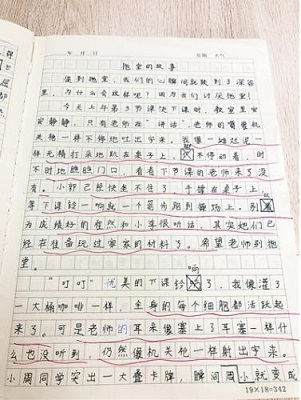 年 月 日 星期 天气
拖堂的故事
一提到拖堂,我们的心瞬间就跌到了深谷
里。为什么会这样呢?因为我们讨厌拖堂!
今天上午第3节课快下课时,教室里安
安静静,只有老师在“讲话”,老师的嘴像机
关枪一样不停地吐出字来。我像一摊烂泥一
样无精打采地趴在桌子上,不停动着,时
不时地瞧瞧门口,看看下节课的老师来了没
有。小郭已经快坐不住了,手撑在桌子上,
等下课铃一响就一个箭为跑到操场上,别
为成绩好的程然和小李很听话,其实她们已
经在准备玩过家家的材料了。希望老师别拖
堂。
“叮叮”优美的下课铃响了,我像灌了
一大桶咖啡一样,全身的每个细胞都活跃起
来了。可是老师的耳朵像塞上了耳塞一样什
么也没听到,仍然像机关枪一样射出字来。
小周同学突出一大叠卡牌,瞬间周小就变成
19×18=342